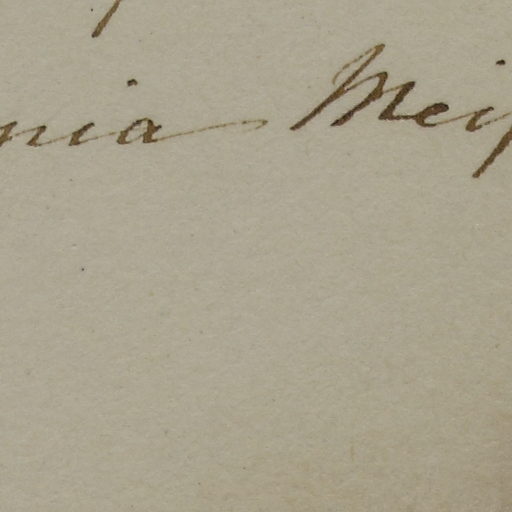 nia Meij